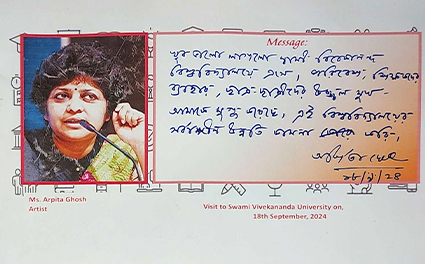 Message:
খুব ভালো লাগলো স্বামী বিবেকানন্দ
বিশ্ববিদ্যালয়ে এসে, পরিবেশ, শিক্ষকদের
ব্যবহার, ছাত্র-ছাত্রীদের উজ্জ্বল মুখ
আমাকে মুগ্ধ করেছে, এই বিশ্ববিদ্যালয়ের
সর্বাঙ্গীন উন্নতি কামনা করি,
অর্পিতা ঘোষ
১৮/৯/২৪
Ms. Arpita Ghosh
Artist
Visit to Swami Vivekananda University on,
18th September, 2024